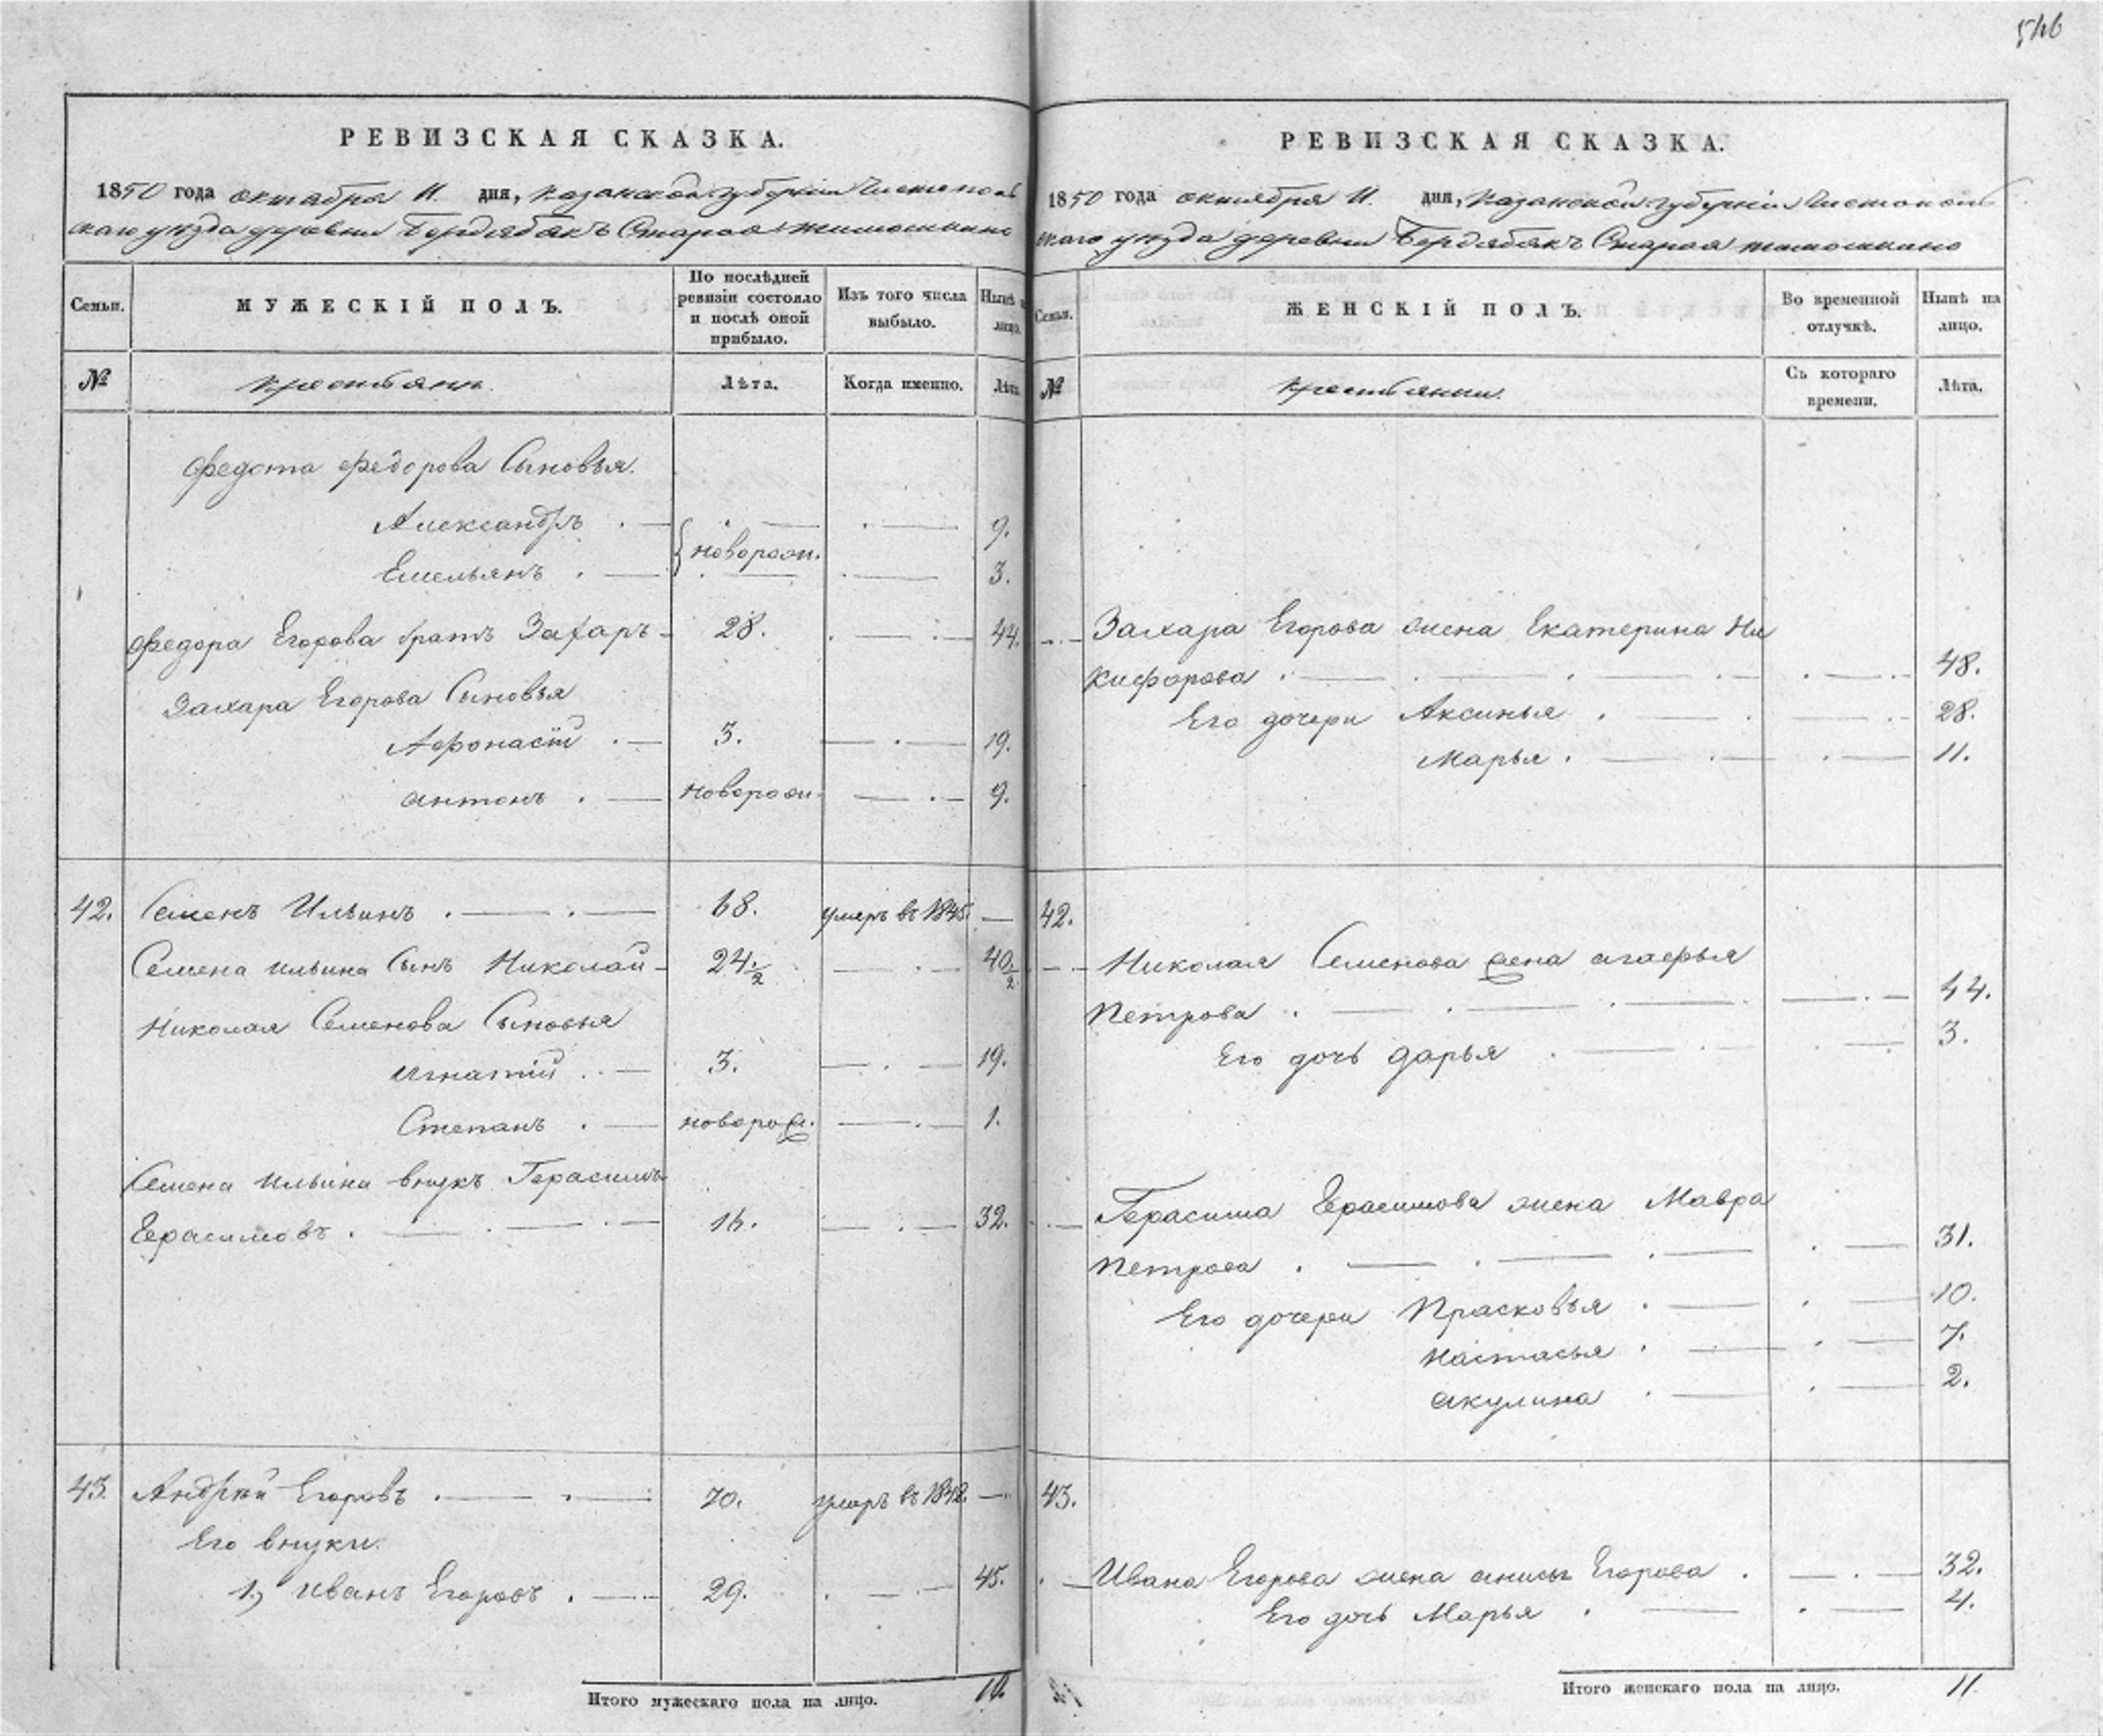 546
РЕВИЗСКАЯ СКАЗКА.
1850 года октября 11. дня, Казанской губернии Чистополь
скаго уезда деревни Бердябякъ Старое тимошкино
Семьи.
МУЖЕСКІЙ ПОЛЪ.
По послѣдней ревизіи состояло и послѣ оной прибыло.
Изъ того числа выбыло.
Нынѣ на лицо.
№
Крестьяне.
Лѣта.
Когда именно.
Лѣта.
Федота Федорова Сыновья.
Александръ 9.
новорож.
Емельянъ 3.
Федора Егорова братъ Захаръ 28. 44.
Захара Егорова Сыновья
Афонасій 3. 19.
антонъ новорож. 9.
42. Семенъ Ильинъ 68. умеръ въ 1845.
Семена ильина Сынъ Николай 24½ 40½
Николая Семенова Сыновья
игнатій 3. 19.
Степанъ новорож. 1.
Семена ильина внукъ Герасимъ
Герасимовъ 16. 32.
43. Андрей Егоровъ 70. умеръ въ 1848.
Его внуки:
1, иванъ Егоровъ 29. 45.
Итого мужескаго пола на лицо. 10.
РЕВИЗСКАЯ СКАЗКА.
1850 года октября 11. дня, Казанской губерніи Чистополь
скаго уезда деревни Бердябякъ Старая тимошкино
Семьи.
ЖЕНСКІЙ ПОЛЪ.
Во временной отлучкѣ.
Нынѣ на лицо.
№
Крестьянки.
Съ котораго времени.
Лѣта.
Захара Егорова жена Екатерина Ни
кифорова 48.
Его дочери Аксинья 28.
Марья 11.
42.
Николая Семенова жена агафья
Петрова 44.
Его дочь дарья 3.
Герасима Герасимова жена Мавра
Петрова 31.
Его дочери Прасковья 10.
настасья 7.
акулина 2.
43.
Ивана Егорова жена анисья Егорова 32.
Его дочь Марья 4.
Итого женскаго пола на лицо. 11